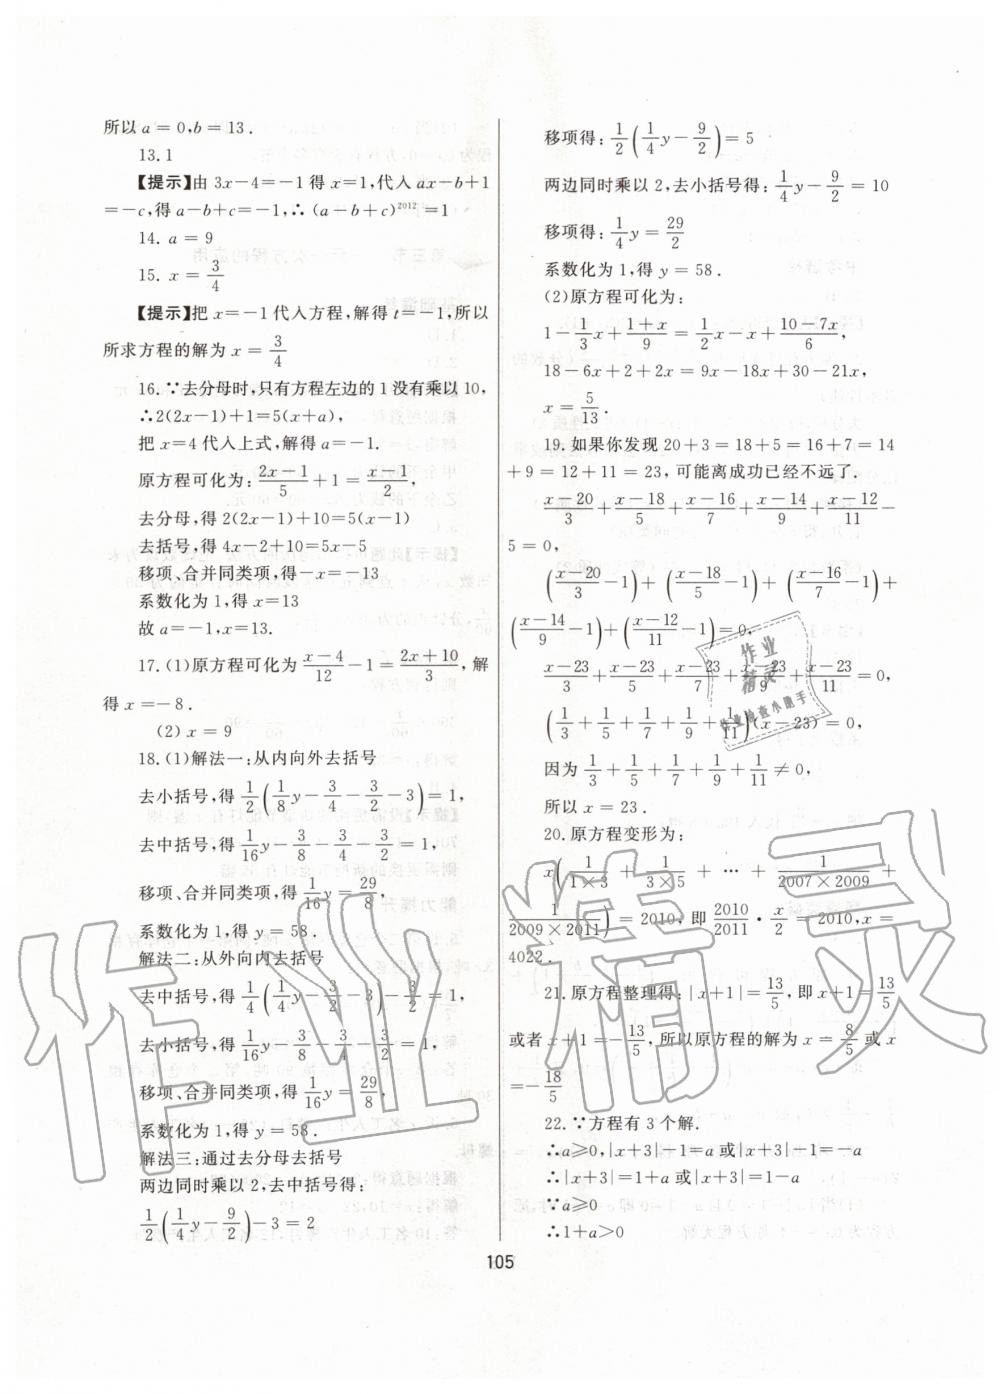 所以 a=0,b=13.
13.1
【提示】由 3x-4=-1 得 x=1,代入 ax-b+1
=-c,得 a-b+c=-1,∴(a-b+c)^2012=1
14. a=9
15. x=3/4
【提示】把 x=-1 代入方程,解得 t=-1,所以
所求方程的解为 x=3/4
16.∵去分母时,只有方程左边的 1 没有乘以 10,
∴2(2x-1)+1=5(x+a),
把 x=4 代入上式,解得 a=-1.
原方程可化为 (2x-1)/5+1=(x-1)/2,
去分母,得 2(2x-1)+10=5(x-1)
去括号,得 4x-2+10=5x-5
移项、合并同类项,得 -x=-13
系数化为 1,得 x=13
故 a=-1,x=13.
17.(1)原方程可化为 (x-4)/12-1=(2x+10)/3,解
得 x=-8.
(2) x=9
18.(1)解法一:从内向外去括号
去小括号,得 1/2(1/8y-3/4-3/2-3)=1,
去中括号,得 1/16y-3/8-3/4-3/2=1,
移项、合并同类项,得 1/16y=29/8,
系数化为 1,得 y=58.
解法二:从外向内去括号
去中括号,得 1/4(1/4y-3/2-3)-3/2=1,
去小括号,得 1/16y-3/8-3/4-3/2=1,
移项、合并同类项,得 1/16y=29/8,
系数化为 1,得 y=58.
解法三:通过去分母去括号
两边同时乘以 2,去中括号得:
1/2(1/4y-9/2)-3=2
移项得:1/2(1/4y-9/2)=5
两边同时乘以 2,去小括号得:1/4y-9/2=10
移项得:1/4y=29/2
系数化为 1,得 y=58.
(2)原方程可化为:
1-1/3x+(1+x)/9=1/2x-x+(10-7x)/6,
18-6x+2+2x=9x-18x+30-21x,
x=5/13.
19.如果你发现 20+3=18+5=16+7=14
+9=12+11=23,可能离成功已经不远了.
(x-20)/3+(x-18)/5+(x-16)/7+(x-14)/9+(x-12)/11-
5=0,
((x-20)/3-1)+((x-18)/5-1)+((x-16)/7-1)+
((x-14)/9-1)+((x-12)/11-1)=0,
(x-23)/3+(x-23)/5+(x-23)/7+(x-23)/9+(x-23)/11=0,
(1/3+1/5+1/7+1/9+1/11)(x-23)=0,
因为 1/3+1/5+1/7+1/9+1/11≠0,
所以 x=23.
20.原方程变形为:
x(1/(1×3)+1/(3×5)+…+1/(2007×2009)+
1/(2009×2011))=2010,即 2010/2011·x/2=2010,x=
4022.
21.原方程整理得:|x+1|=13/5,即 x+1=13/5
或者 x+1=-13/5,所以原方程的解为 x=8/5 或 x
=-18/5
22.∵方程有 3 个解.
∴a≥0,|x+3|-1=a 或|x+3|-1=-a
∴|x+3|=1+a 或|x+3|=1-a
∵a≥0
∴1+a>0
105
作业精灵
作业
精灵
作业检查小助手